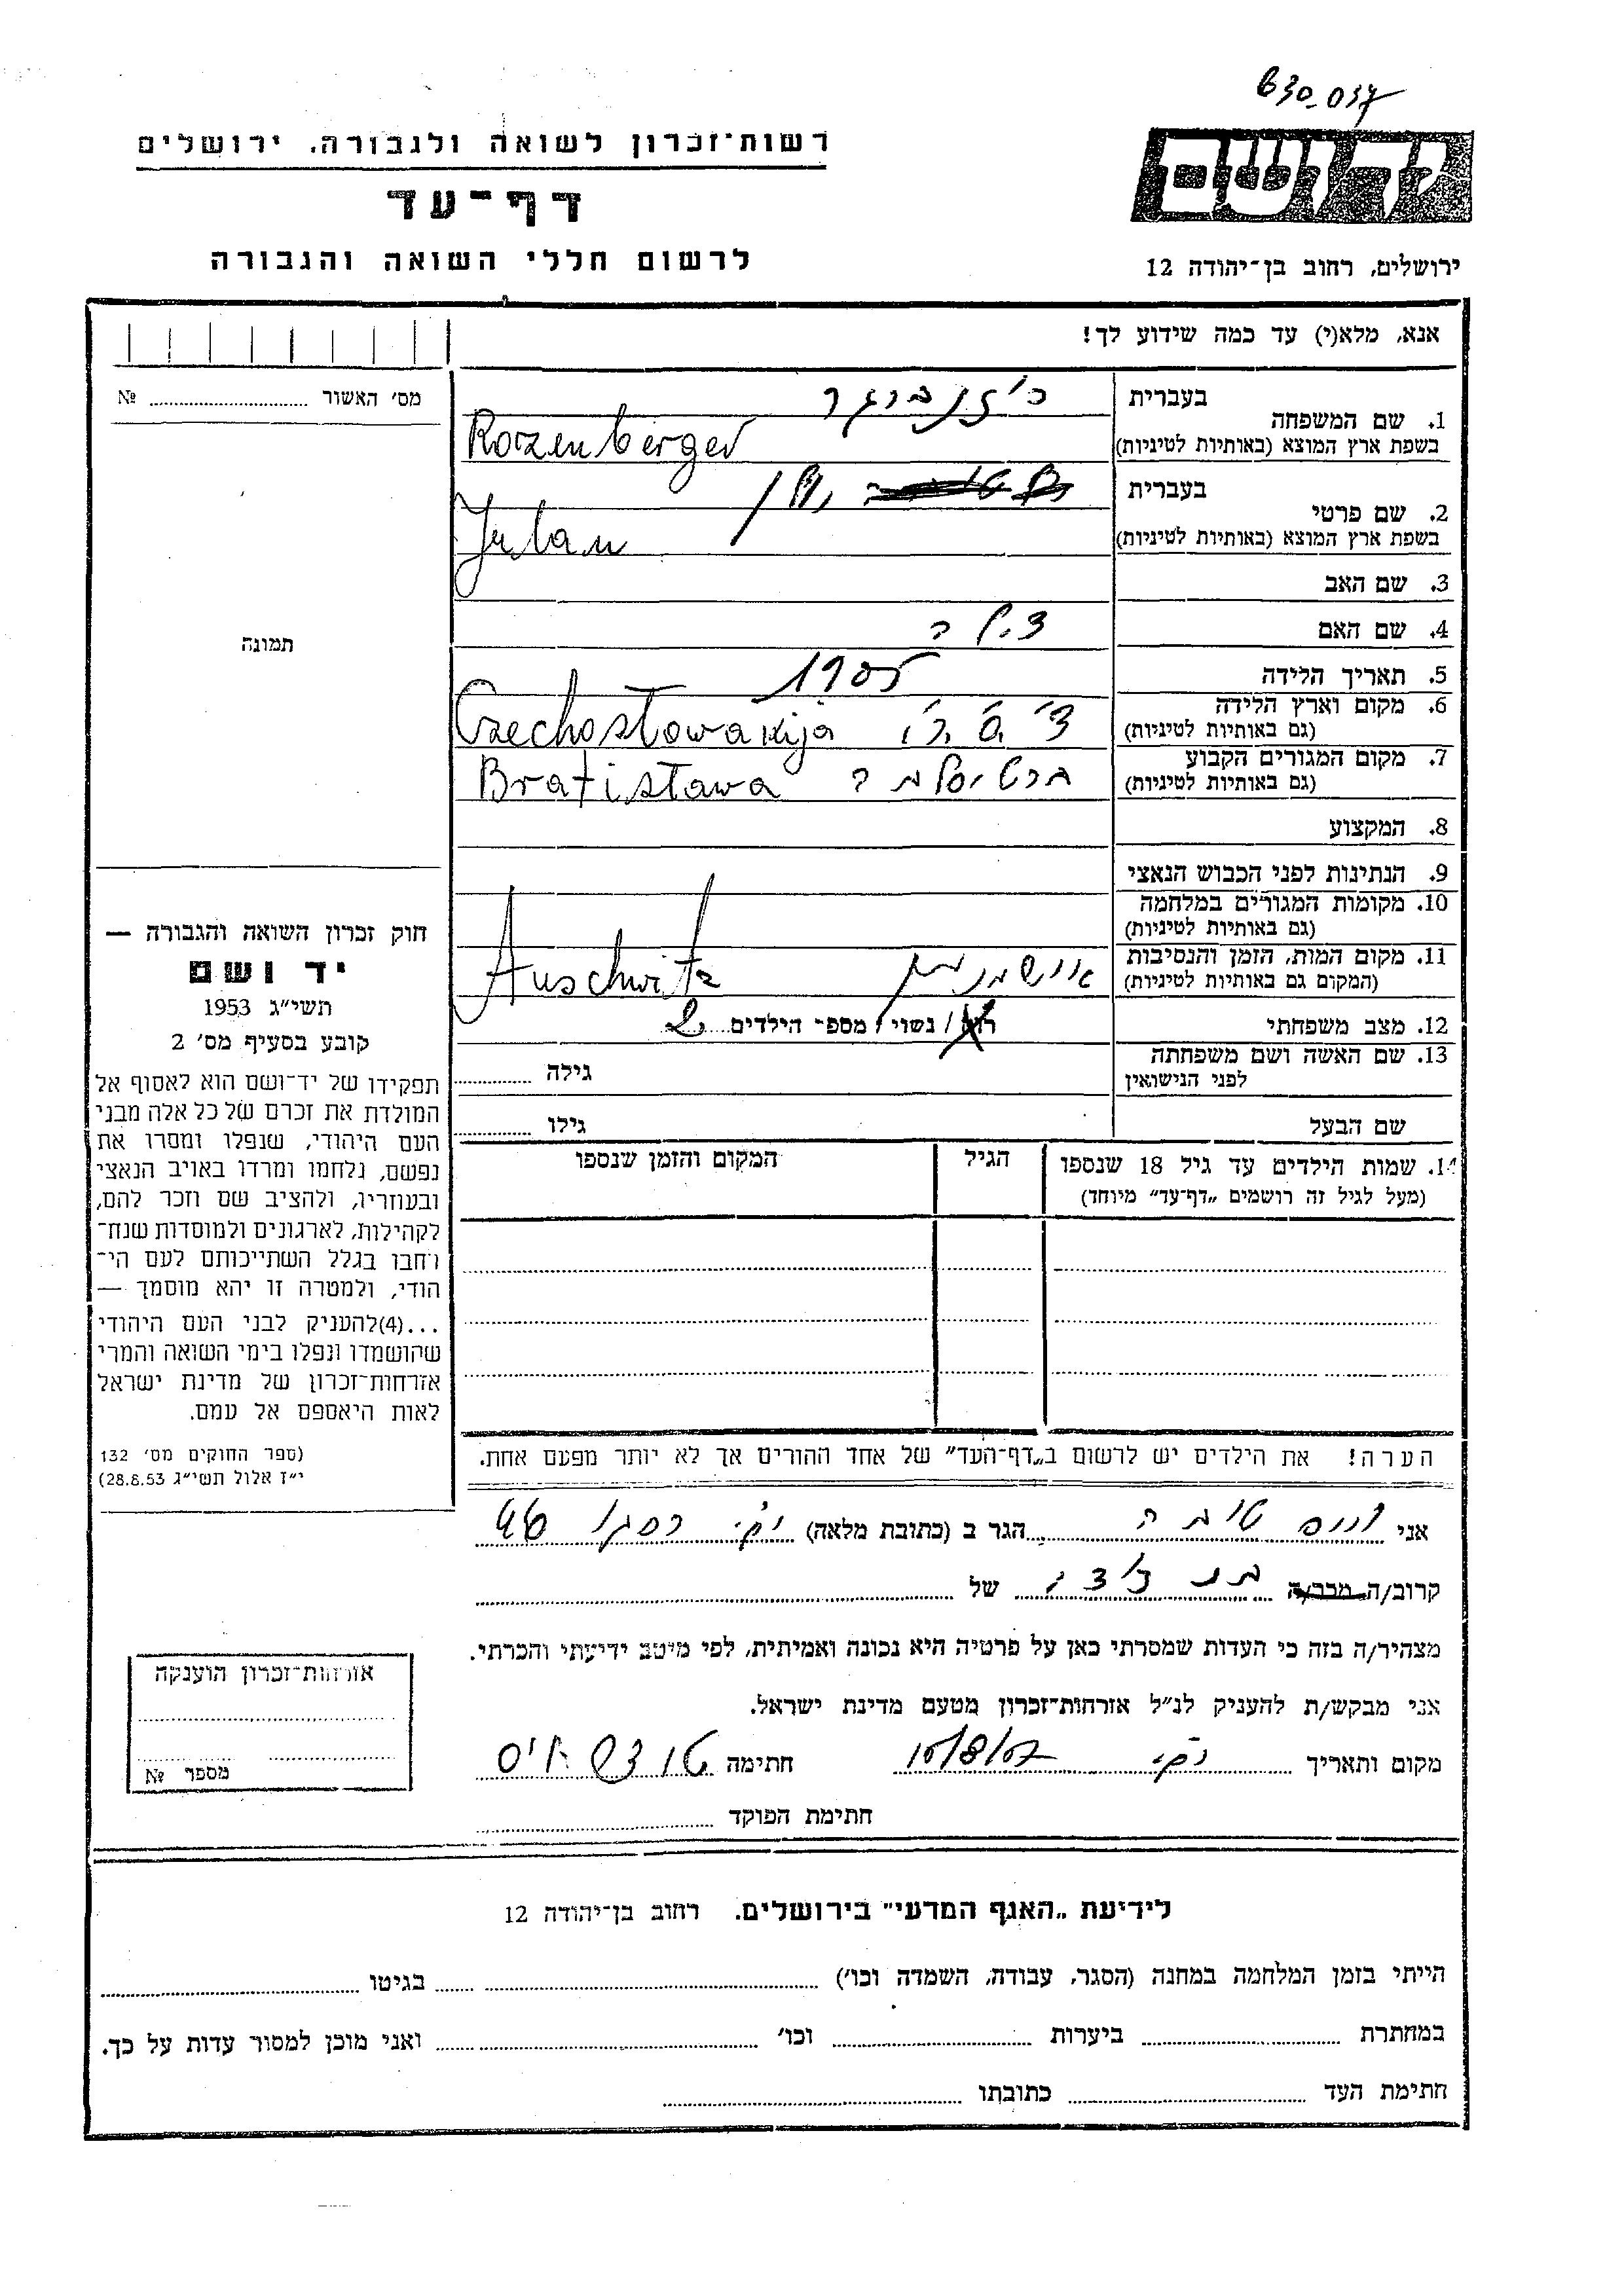 630_037
רשות־זכרון לשואה ולגבורה. ירושלים
יד ושם
דף־עד
לרשום חללי השואה והגבורה
ירושלים, רחוב בן־יהודה 12
אנא, מלא(י) עד כמה שידוע לך!
מס׳ האשור №
1. שם המשפחה בעברית
רוזנברגר
בשפת ארץ המוצא (באותיות לטיניות)
Rozenberger
2. שם פרטי בעברית
בשפת ארץ המוצא (באותיות לטיניות)
3. שם האב
4. שם האם
5. תאריך הלידה 1905
6. מקום וארץ הלידה
(גם באותיות לטיניות)
Czechosłowakija
7. מקום המגורים הקבוע
(גם באותיות לטיניות)
ברטיסלבה Bratisława
8. המקצוע
9. הנתינות לפני הכבוש הנאצי
10. מקומות המגורים במלחמה
(גם באותיות לטיניות)
11. מקום המות, הזמן והנסיבות
(המקום גם באותיות לטיניות)
Auschwitz
12. מצב משפחתי רוק / נשוי / מספר הילדים 2
13. שם האשה ושם משפחתה
לפני הנישואין
גילה
שם הבעל גילו
14. שמות הילדים עד גיל 18 שנספו
(מעל לגיל זה רושמים „דף־עד״ מיוחד)
הגיל
המקום והזמן שנספו
הערה! את הילדים יש לרשום ב„דף־העד״ של אחד ההורים אך לא יותר מפעם אחת.
תמונה
חוק זכרון השואה והגבורה —
יד ושם
תשי״ג 1953
קובע בסעיף מס׳ 2
תפקידו של יד־ושם הוא לאסוף אל
המולדת את זכרם של כל אלה מבני
העם היהודי, שנפלו ומסרו את
נפשם, נלחמו ומרדו באויב הנאצי
ובעוזריו, ולהציב שם וזכר להם,
לקהילות, לארגונים ולמוסדות שנח־
רחבו בגלל השתייכותם לעם הי־
הודי, ולמטרה זו יהא מוסמך —
...(4)להעניק לבני העם היהודי
שהושמדו ונפלו בימי השואה והמרי
אזרחות־זכרון של מדינת ישראל
לאות היאספם אל עמם.
(ספר החוקים מס׳ 132
י״ז אלול תשי״ג 28.8.53)
אני הגר ב (כתובת מלאה)
קרוב/ה מכר/ה של
מצהיר/ה בזה כי העדות שמסרתי כאן על פרטיה היא נכונה ואמיתית, לפי מיטב ידיעתי והכרתי.
אני מבקש/ת להעניק לנ״ל אזרחות־זכרון מטעם מדינת ישראל.
מקום ותאריך חתימה
חתימת הפוקד
אזרחות־זכרון הוענקה
מספר №
לידיעת „האגף המדעי״ בירושלים. רחוב בן־יהודה 12
הייתי בזמן המלחמה במחנה (הסגר, עבודה, השמדה וכו׳) בגיטו
במחתרת ביערות וכו׳ ואני מוכן למסור עדות על כך.
חתימת העד כתובתו